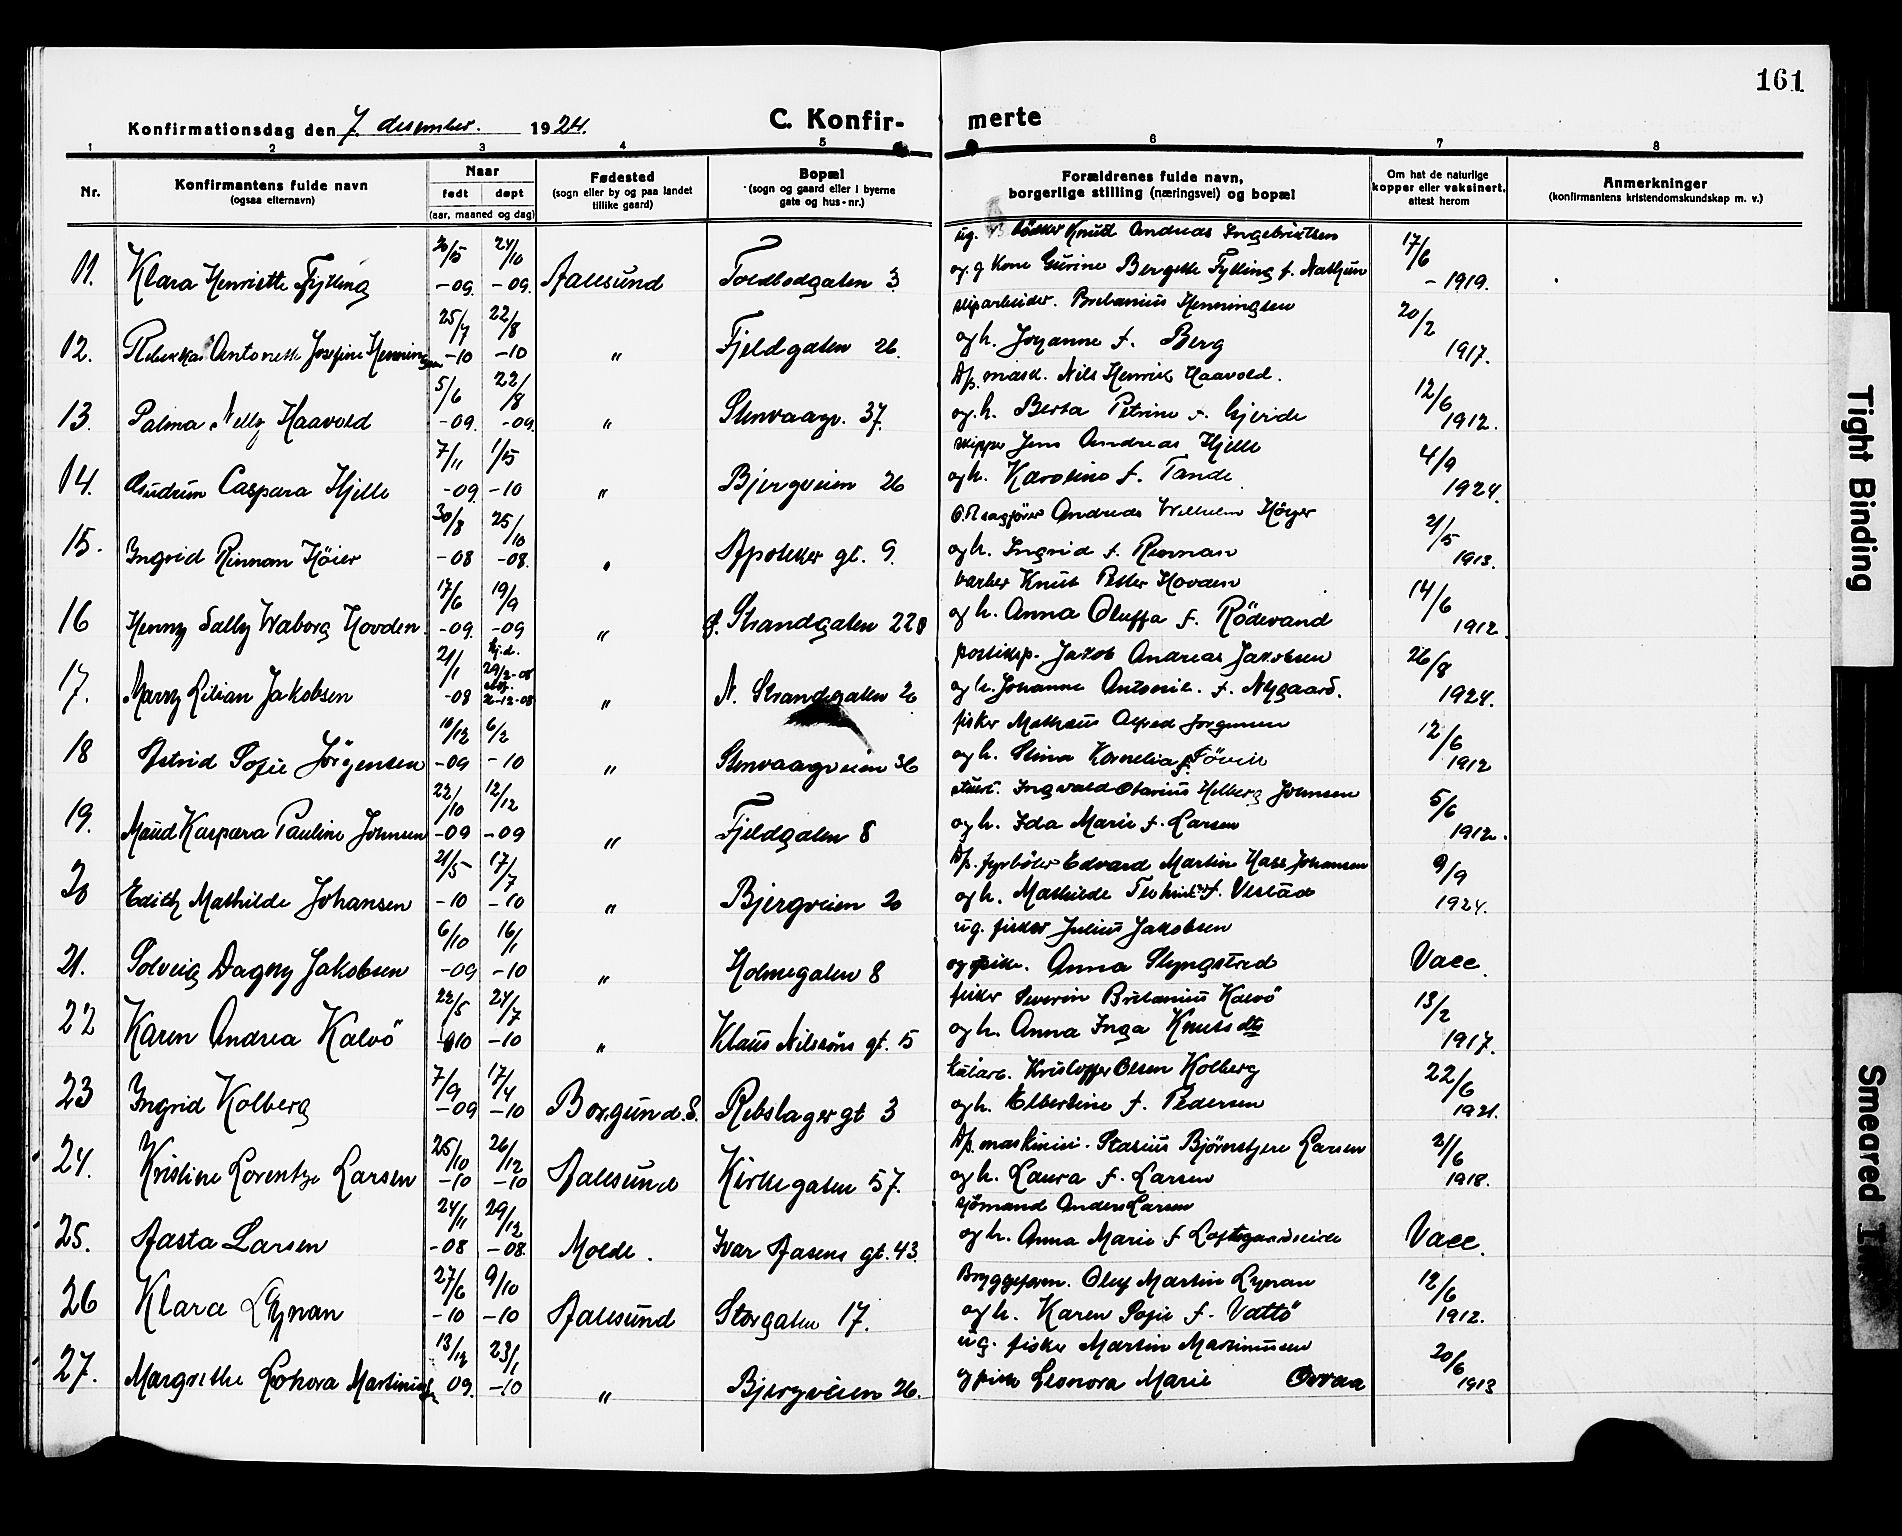 161
Konfirmationsdag den 7. desember. 1924.
C. Konfirmerte
1 2 3 4 5 6 7 8
Nr.
Konfirmantens fulde navn
(ogsaa efternavn)
Naar
født døpt
(aar, maaned og dag)
Fødested
(sogn eller by og paa landet
tillike gaard)
Bopæl
(sogn og gaard eller i byerne
gate og hus-nr.)
Forældrenes fulde navn,
borgerlige stilling (næringsvei) og bopæl
Om hat de naturlige
kopper eller vaksinert,
attest herom
Anmerkninger
(konfirmantens kristendomskundskap m. v.)
ug. Knud Andreas Ingebrigtsen
11. Klara Henriette Fylling 30/5 -09. 24/10 -09. Aalesund Toldbodgaten 3
og g kone Gurine Bergette Fylling f. 17/6 -1919.
Britanius Henningsen
12. Rebekka Antonette Josefine Henningsen 25/7 -10 22/8 -10 " Fjeldgaten 26.
og h. Johanne f. Berg 20/2 1917.
Dp. mask. Nils Henrik Haavold.
13. Palma Nelly Haavold 5/6 -09. 22/8 -09. " Stenvaagv. 37.
og h. Berta Petrine f. Gjerde 12/6 1912.
skipper Jens Andreas Hjelle
14. Gudrun Caspara Hjelle 7/11 -09. 1/5 -10 " Bjergveien 26
og h. Karoline f. Tande 4/9 1924.
O.R.sagfører Andreas Wilhelm Höyer
15. Ingrid Rinnan Höier 30/8 -08 25/10 -08. " Apotekergt. 9.
og h. Ingrid f. Rinnan 2/5 1913.
barber Knut Petter Hovden
16 Henny Sally Waborg Hovden. 17/6 -09. 19/9 -09 " Strandgaten 22
og h. Anna Oluffa f. Rödevand 14/6 1912.
posteksp. Jakob Andreas Jakobsen
17. Marry Lilian Jakobsen 21/1 -08 hj.d. 29/2-08 2-12-08 " N. Strandgaten 2
og h. Johanne Antonie f. Nygaard. 26/8 1924.
fisker Mathæus Alfred Jørgensen
18 Astrid Sofie Jørgensen 10/12 -09 6/2 -10 " Stenvaagveien 36
og h. Stina Kornelia f. 12/6 1912
Ingvald Olarius Helberg Johnsen
19. Maud Kaspara Pauline Johnsen 22/10 -09 12/12 -09 " Fjeldgaten 8
og h. Ida Marie f. Larsen 5/6 1912.
Dp. fyrbøter Edvard Martin Hass Johansen
20 Edith Mathilde Johansen 21/5 -10 17/7 -10 " Bjergveien 20
og h. Mathilde f. Vestad 9/9 1924.
ug. fisker Julius Jakobsen
21. Solveig Dagny Jakobsen 6/10 -09 16/1 -10 " Holmegaten 8
og pike. Anna Slyngstad Vacc.
fisker Severin Britanius Kalvö
22 Karen Andrea Kalvö 22/5 -10 24/7 -10 " Klaus Nilssöns gt. 15
og h. Anna Inga Knutsdtr 13/2 1917.
Kristoffer Olsen Kolberg
23 Ingrid Kolberg 7/9 -09 17/4 -10 Borgund. S. Rebslagergt 3
og h. Elbertine f. Pedersen 22/6 1921.
Dp. maskinist. Stasius Bjørnstjerne Larsen
24. Kristine Lorentze Larsen 25/10 -10 26/12 -10 Aalesund Kirkegaten 57.
og h. Laura f. Larsen 2/6 1918.
sjömand Anders Larsen
25. Aasta Larsen 24/11 -08 29/12 -08. Molde. Ivar Aasens gt. 43.
og h. Anna Marie f Vacc.
Bryggeform. Oluf Martin Lynan
26 Klara Lynan 27/6 -10 9/10 -10 Aalesund Storgaten 17.
og h. Karen Sofie f. Vattö 12/6 1912.
ug. fisker Martin Martinussen
27. Margrethe Martinussen 13/12 09. 23/1 -10 " Bjergveien 26.
og pike Leonora Marie Orvaa 20/6 1913
Tight Binding
Smeared Ink